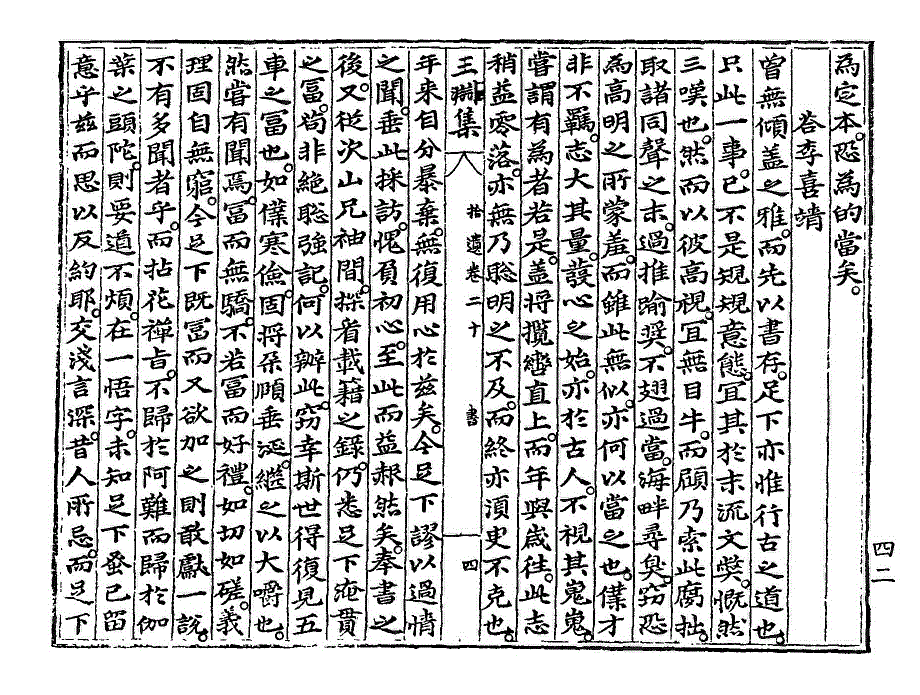 為定本。恐為的當矣。
答李喜靖
曾無傾盖之雅。而先以書存。足下亦惟行古之道也。
只此一事。已不是規規意態。宜其於末流文弊。慨然
三嘆也。然而以彼高視。宜無目牛。而顧乃索此腐拙。
取諸同聲之末。過推踰奬。不翅過當。海畔尋臭。窃恐
為高明之所蒙羞。而雖此無似。亦何以當之也。僕才
非不羈。志大其量。發心之始。亦於古人。不視其嵬嵬。
嘗謂有為者若是。盖将攬轡直上。而年與歲往。此志
稍益零落。亦無乃聡明之不及。而終亦須臾不克也。
三淵集 拾遺卷二十 書 四
年来自分暴棄。無復用心於兹矣。今足下謬以過情
之聞。垂此採訪。愧負初心。至此而益赧然矣。奉書之
後。又従次山兄袖間。探看載籍之錄。仍悉足下淹貫
之富。苟非絶聡强記。何以辦此。窃幸斯世得復見五
車之富也。如僕寒儉。固将朶頤垂涎。繼之以大嚼也。
然嘗有聞焉。富而無驕。不若富而好禮。如切如磋。義
理固自無窮。今足下既富而又欲加之。則敢獻一說。
不有多聞者乎。而拈花禅旨。不歸於阿難而歸於伽
葉之頭陀。則要道不煩。在一悟字。未知足下蚤已留
意乎兹而思以反約耶。交淺言深。昔人所忌。而足下
四二